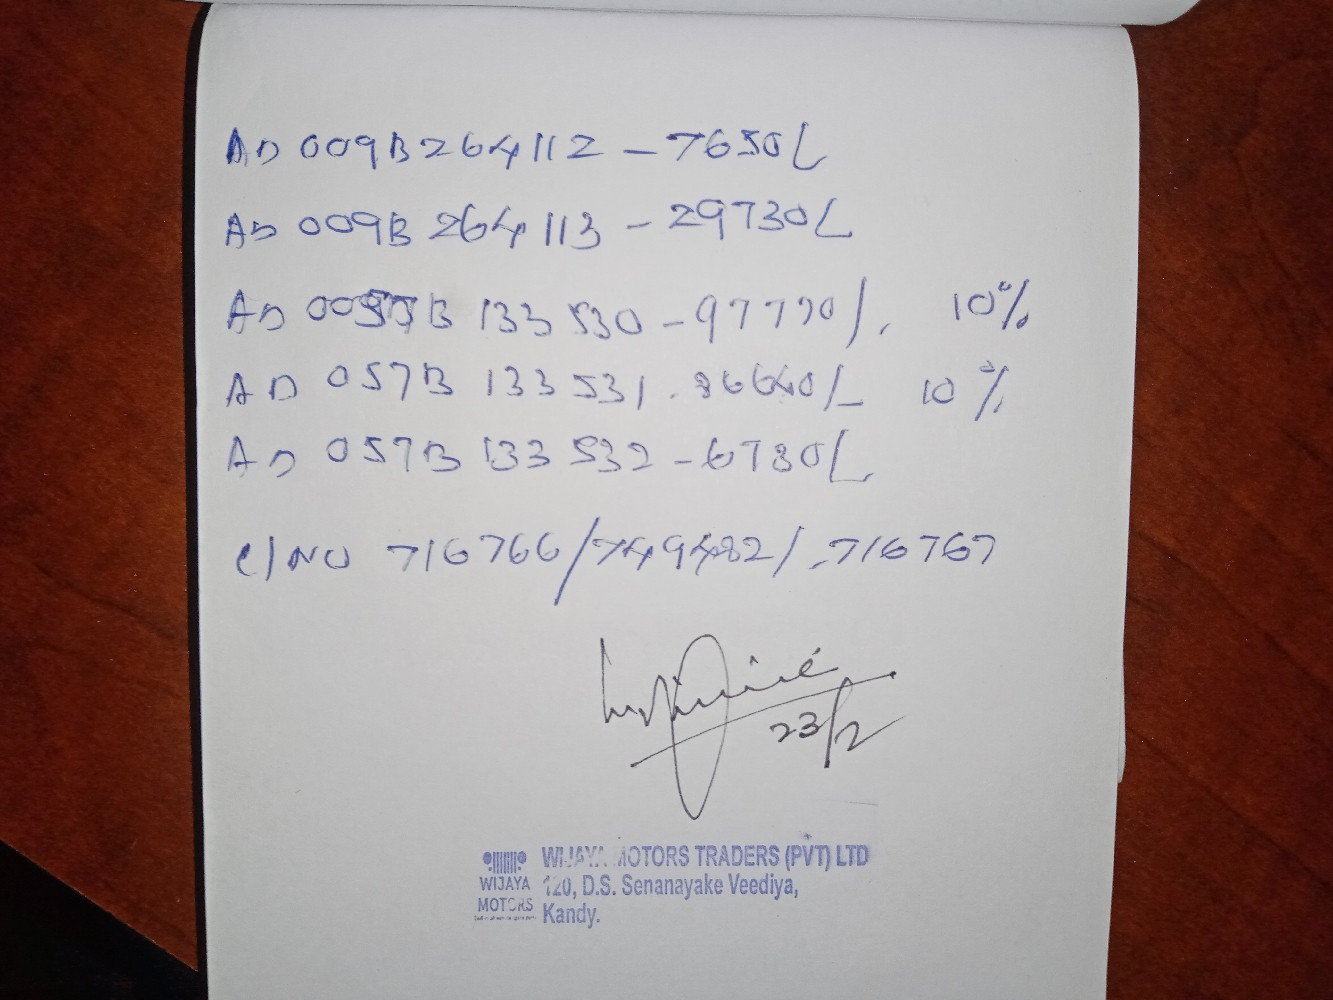 AD 009B264112 - 7650/-
AD 009B 264113 - 29730/-
AD 0057B 133530 - 97770/. 10%
AD 057B 133531 . 86640/- 10%
AD 057B 133532 - 6780/-
C/NO 716766/749482/.716767
23/2
WIJAYA MOTORS TRADERS (PVT) LTD
WIJAYA 120, D.S. Senanayake Veediya,
MOTORS Kandy.